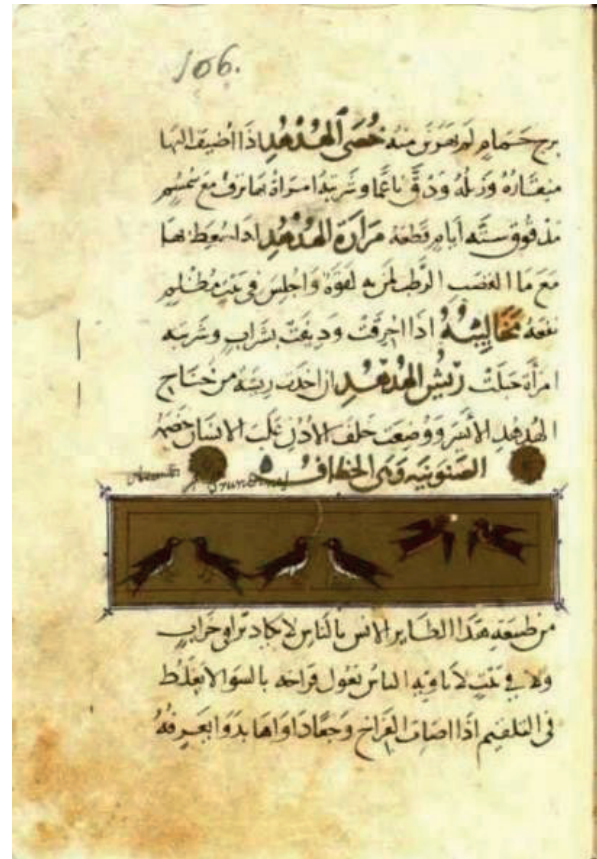 106.
برج حمام لم يقربن منه خصى الهدهد اذا اضيف اليها
منقاره وزبله ودق ناعما وشربته امراة بها نزف مع
فوق ستة أيام قطعه مرارة الهدهد اذا سعط بها
مع ما الرطب لمن به لقوة واجلس في بيت مظلم
نفعه مخاليبه اذا احرقت وديفت بشراب وشربته
امرأة حبلت ريش الهدهد ان اخذت ريشه من جناح
الهدهد الأيسر ووضعت خلف الاذن غلب الانسان خصمه
الصنونيه وهي الخطاف
hirundines
من طبيعة هذا الطاير الانس بالناس لا يكاد يرا في خراب
ولا في بيت لا ياويه الناس يعول فراخه بالسوا لا يغلط
في التلقيم اذا اصاب الفراخ وجعا داواها بدوا يعرفه